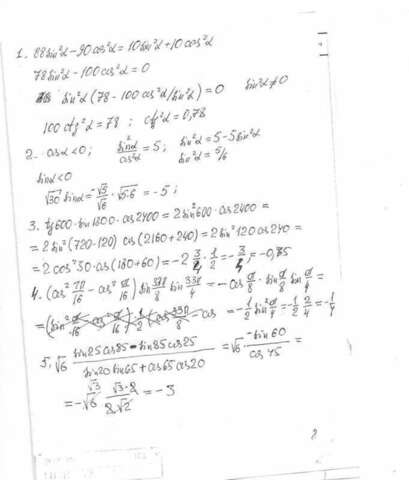 1. 88sin²α-90cos²α=10sin²α+10cos²α
78sin²α-100cos²α=0
sin²α(78-100cos²α/sin²α)=0 sin²α≠0
100ctg²α=78; ctg²α=0,78
2. cosα<0; sin²α/cos²α=5; sin²α=5-5sin²α
sin²α=5/6
sinα<0
√30 sinα=-√5/√6·√(5·6)=-5;
3. tg600·sin1800·cos2400=2sin²600·cos2400=
=2sin²(720-120) cos(2160+240)=2sin²120cos240=
=2cos²30·cos(180+60)=-2·3/4·1/2=-3/4=-0,75
4. (cos²π/16-cos²π/16)sin33π/8 sin33π/4=-cosπ/8·sinπ/8 sinπ/4=
=-1/2sin²π/4=-1/2·2/4=-1/4
5. √6 (sin25cos85-sin85cos25)/(sin20sin65+cos65cos20)=√6·(-sin60)/cos45=
=-√6·(√3·2)/(2√2)=-3